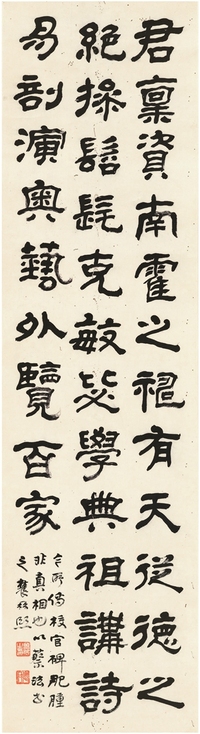 君稟資南霍之禠有天從德之
絕操髫髦克敏毖學典祖講詩
易剖演奧藝外覽百家
今所傳校官碑肥腫
非真相也以蔡法書
之